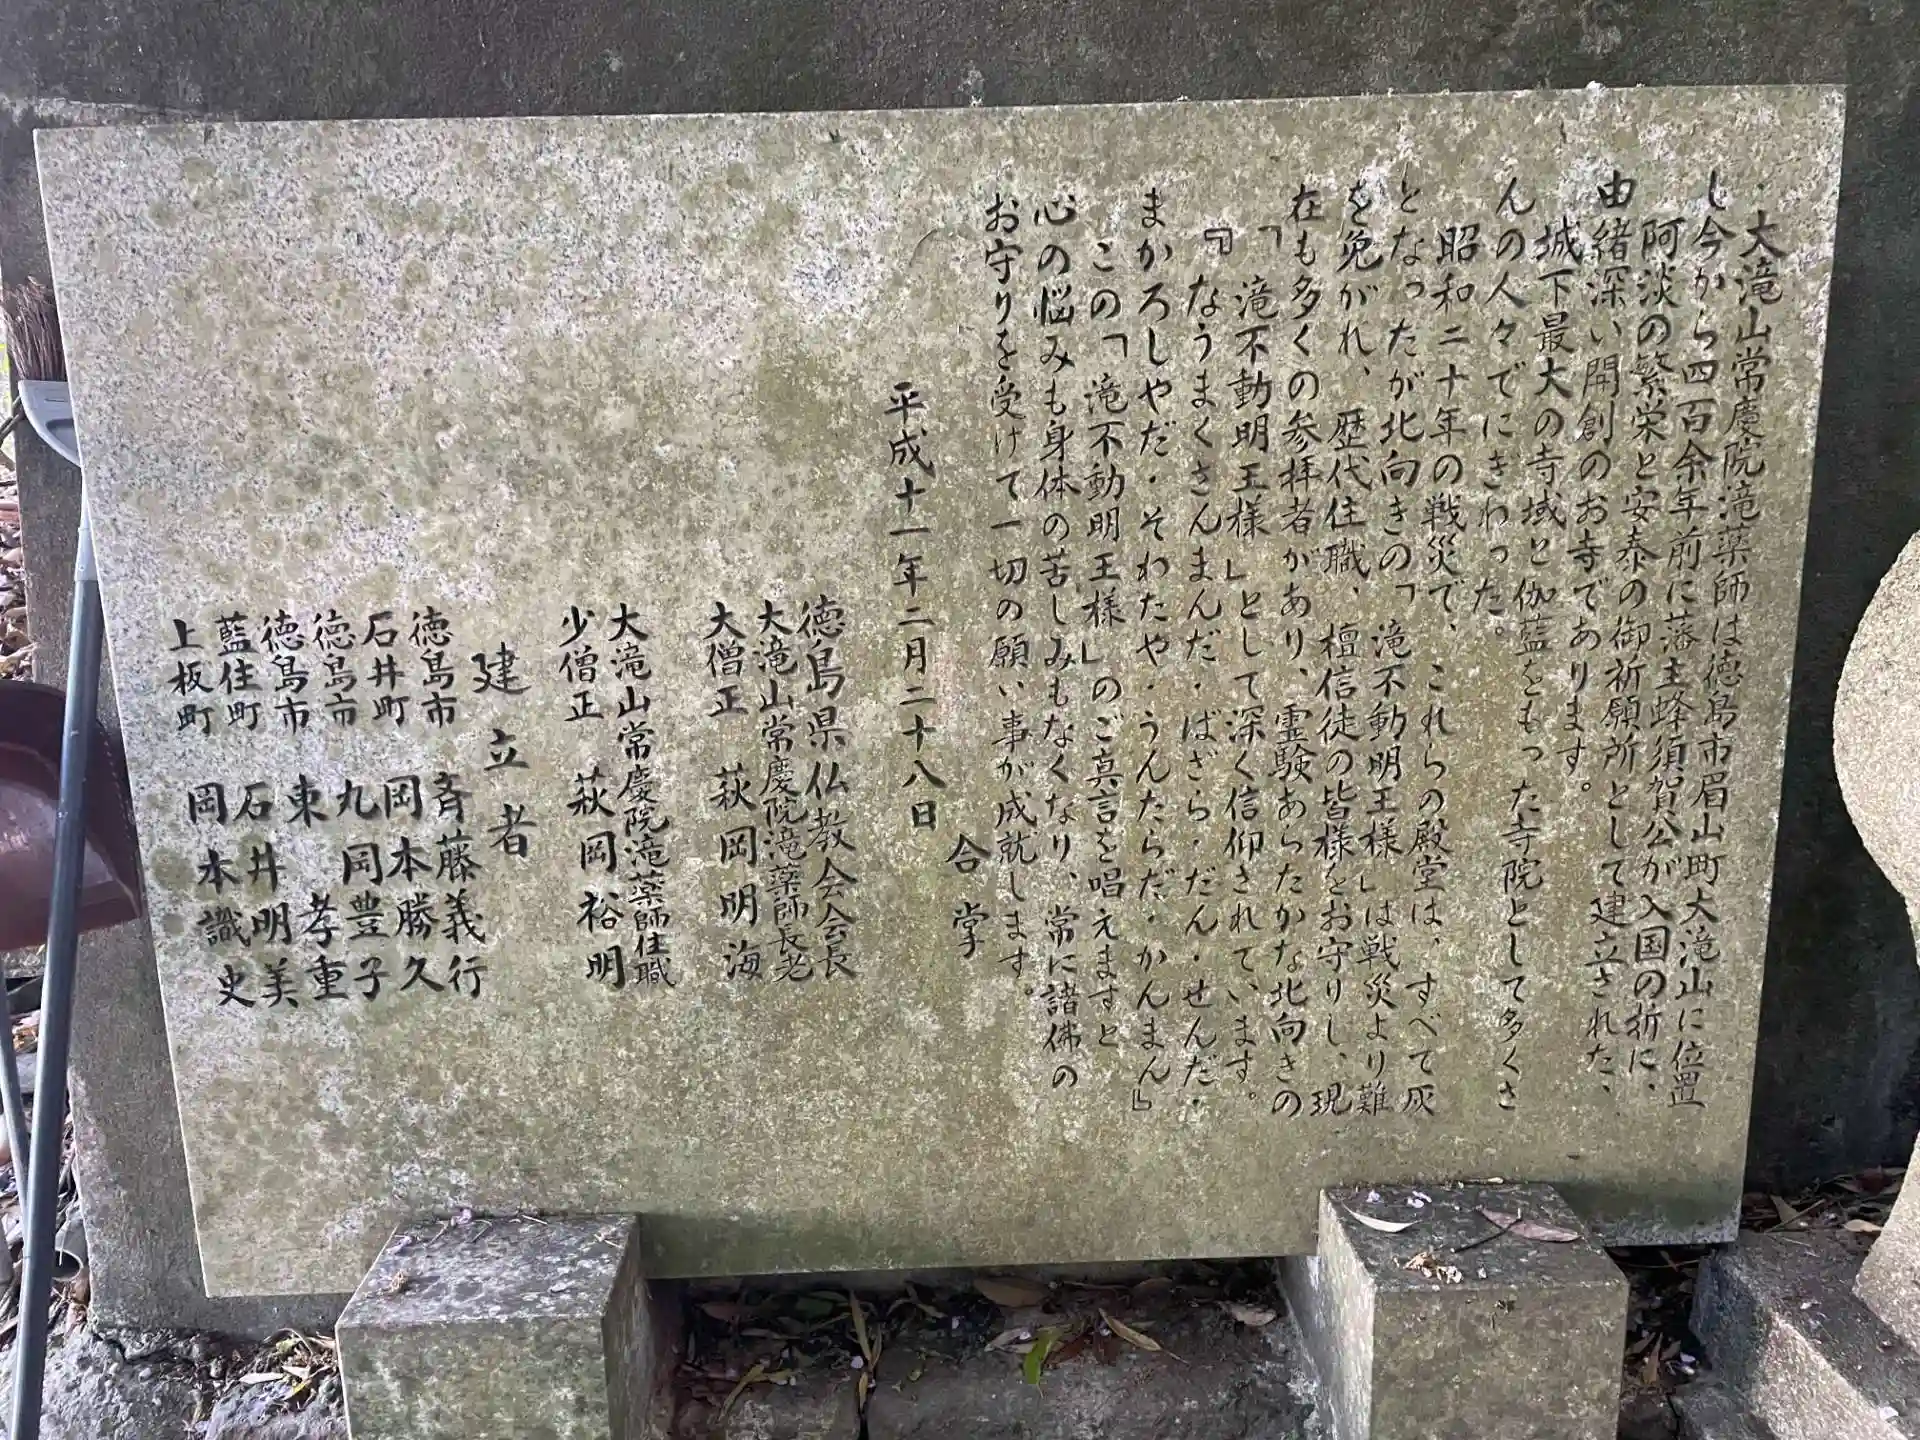 大滝山常慶院滝薬師は徳島市眉山町大滝山に位置
し今から四百余年前に藩主蜂須賀公が入国の折に、
阿淡の繁栄と安泰の御祈願所として建立された、
由緒深い開創のお寺であります。
城下最大の寺域と伽藍をもった寺院として多くさ
んの人々でにぎわった。
昭和二十年の戦災で、これらの殿堂は、すべて灰
となったが北向きの「滝不動明王様」は戦災より難
を免がれ、歴代住職、檀信徒の皆様をお守りし、現
在も多くの参拝者があり、霊験あらたかな北向きの
「滝不動明王様」として深く信仰されています。
『なうまくさんまんだ・ばざら・だん・せんだ・
まかろしやだ・そわたや・うんたらだ・かんまん』
この「滝不動明王様」のご真言を唱えますと
心の悩みも身体の苦しみもなくなり、常に諸佛の
お守りを受けて一切の願い事が成就します。
合掌
平成十一年二月二十八日
徳島県仏教会会長
大滝山常慶院滝薬師長老
大僧正 萩岡明海
大滝山常慶院滝薬師住職
少僧正 萩岡裕明
建立者
徳島市 斉藤義行
石井町 岡本勝久
徳島市 九岡豊子
徳島市 東孝重
藍住町 石井明美
上板町 岡本識史